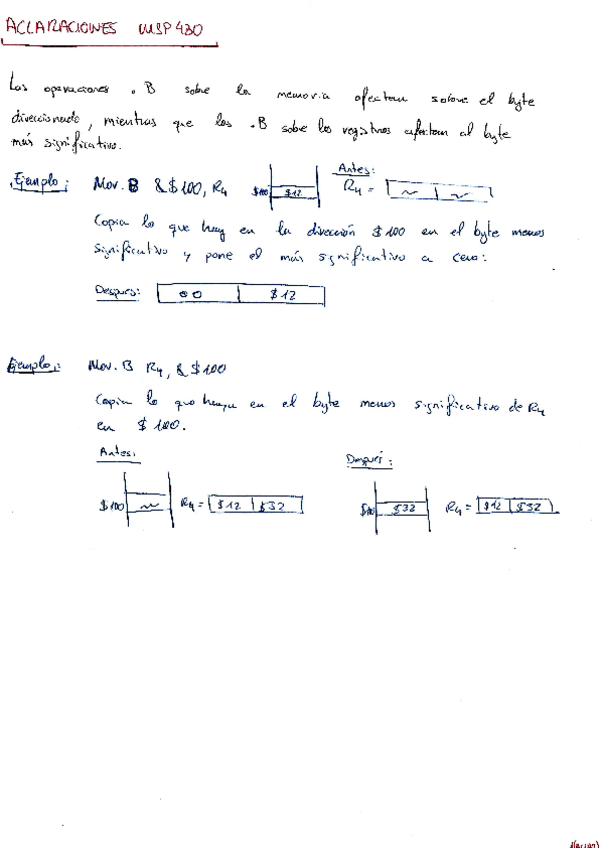 ACLARACIONES MSP430
Las operaciones .B sobre la memoria afectan sobre el byte
direccionado, mientras que los .B sobre los registros afectan al byte
más significativo.
Ejemplo: Mov.B &$100, R4 $100 $12 Antes: R4 =
Copia lo que hay en la dirección $100 en el byte menos
significativo y pone el más significativo a cero:
Después: 00 $12
Ejemplo: Mov.B R4, &$100
Copia lo que haya en el byte menos significativo de R4
en $100.
Antes: Después:
$100 R4 = $12 $32 $100 $32 R4 = $12 $32